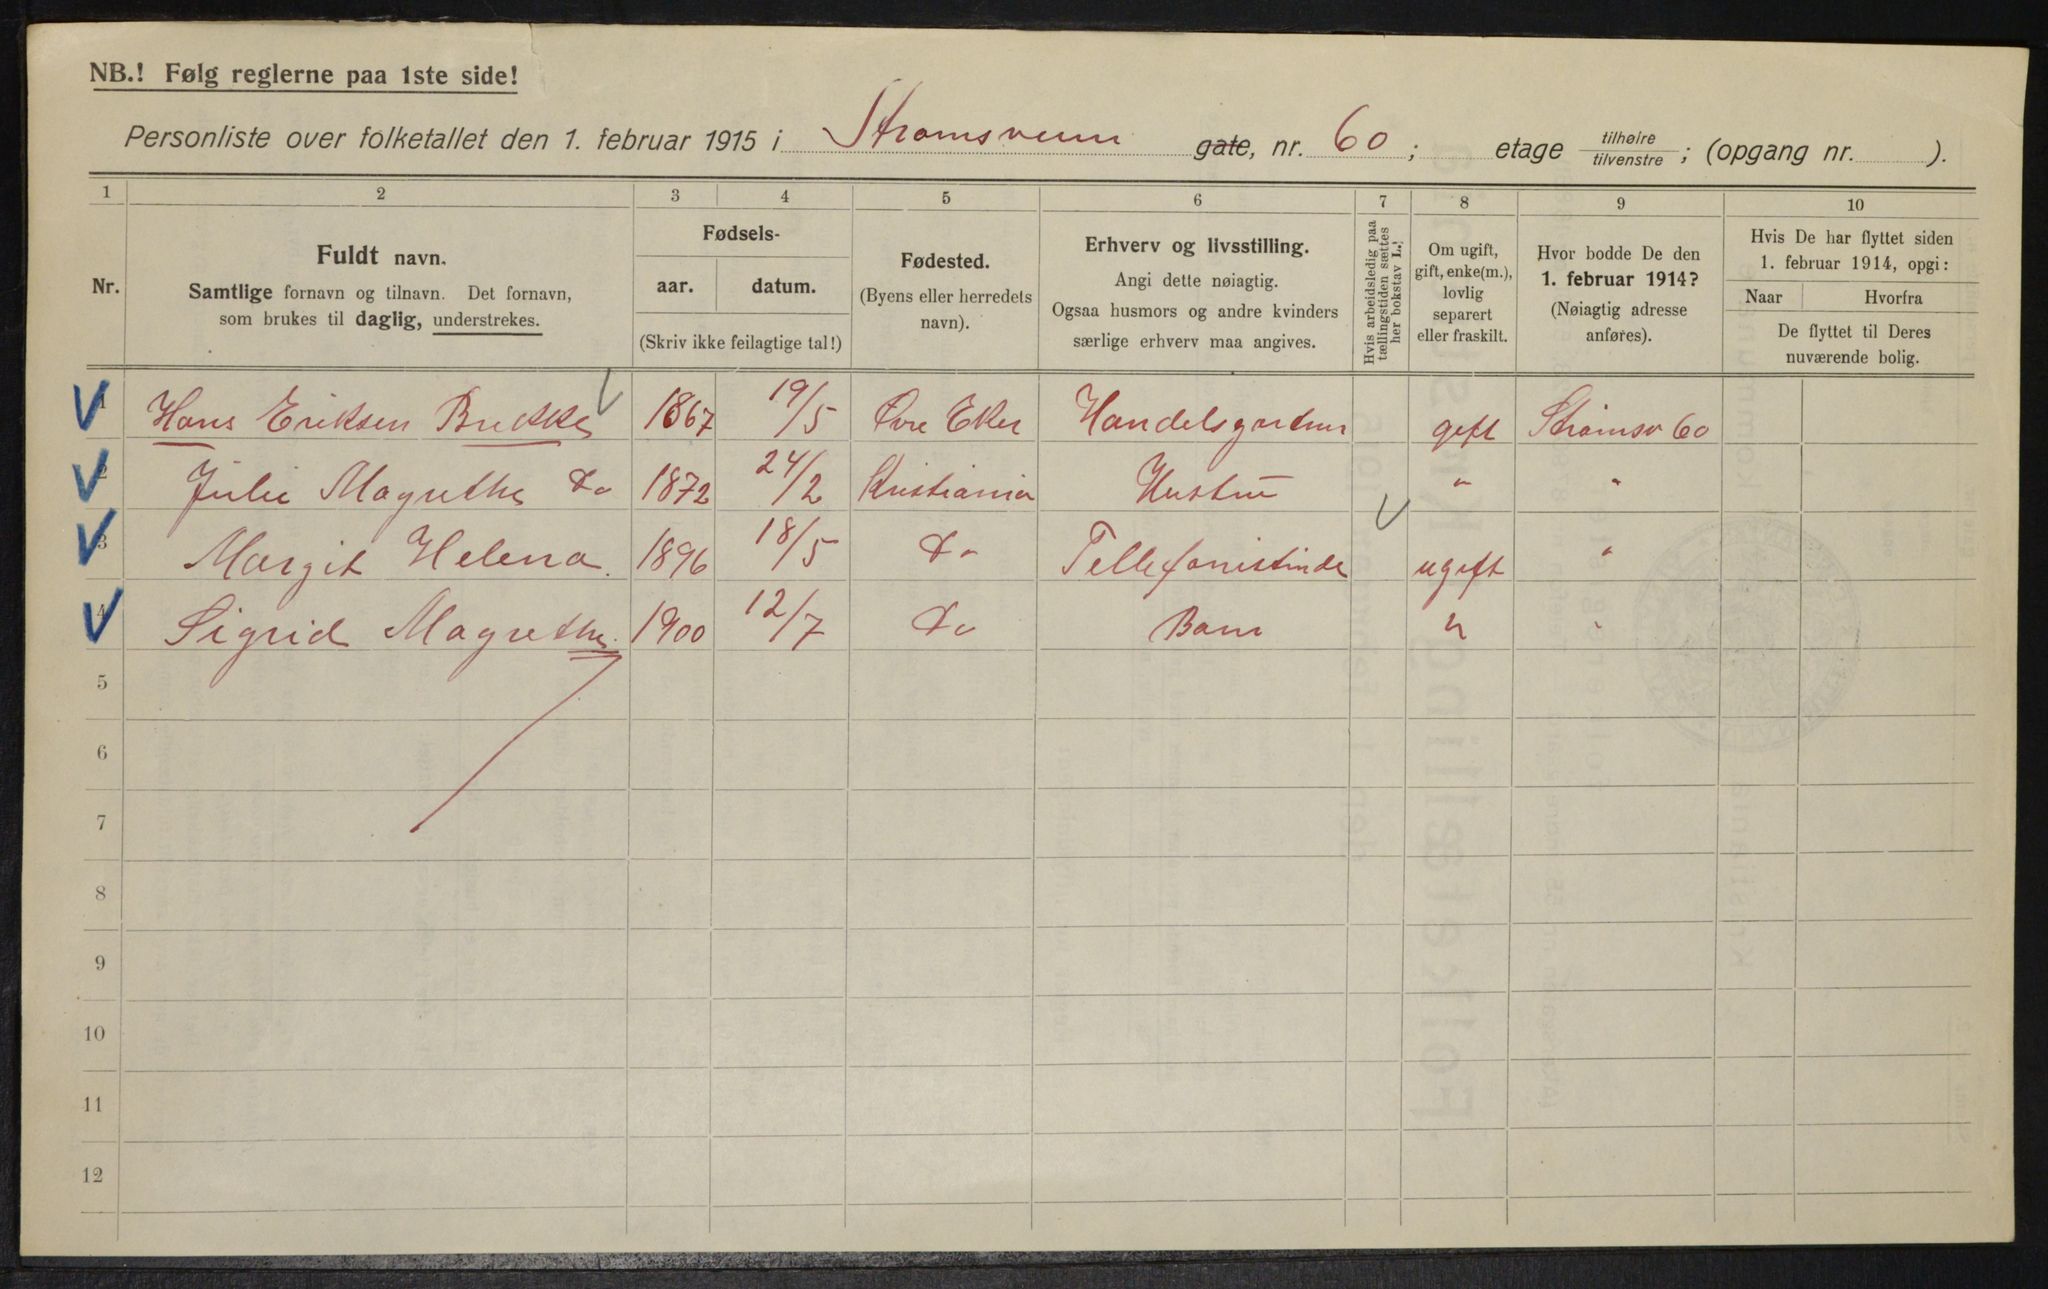 NB.! Følg reglerne paa 1ste side!
Personliste over folketallet den 1. februar 1915 i Strømsveien gate, nr. 60; etage tilhøire/tilvenstre; (opgang nr. ).
1 2 3 4 5 6 7 8 9 10
Nr.
Fuldt navn.
Samtlige fornavn og tilnavn. Det fornavn,
som brukes til daglig, understrekes.
Fødsels-
aar. datum.
(Skriv ikke feilagtige tal!)
Fødested.
(Byens eller herredets
navn).
Erhverv og livsstilling.
Angi dette nøiagtig.
Ogsaa husmors og andre kvinders
særlige erhverv maa angives.
Hvis arbeidsledig paa
tællingstiden sættes
her bokstav L.!
Om ugift,
gift, enke(m.),
lovlig
separert
eller fraskilt.
Hvor bodde De den
1. februar 1914?
(Nøiagtig adresse
anføres).
Hvis De har flyttet siden
1. februar 1914, opgi:
Naar Hvorfra
De flyttet til Deres
nuværende bolig.
1 Hans Eriksen 1867 19/5 Øvre Eker gift Strømsv 60
2 Julie Magrethe Do 1872 24/2 Kristiania Hustru " "
3 Margit Helena. 1896 18/5 Do Tellefonistinde ugift "
4 Sigrid Magrethe. 1900 12/7 Do Barn " "
5
6
7
8
9
10
11
12